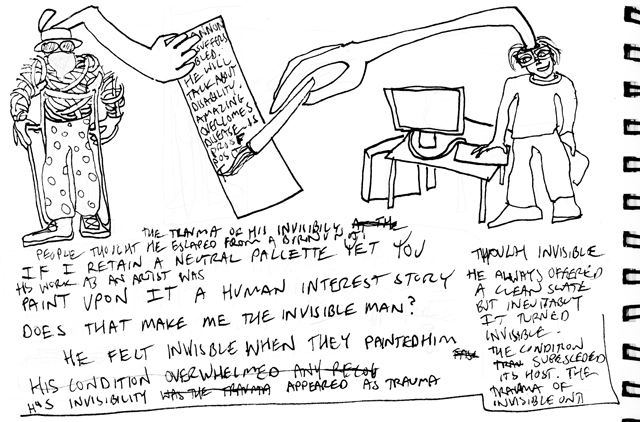 ANNON
SUFFERS
BLED.
HE WILL
TALK ABOUT
DISABILITY.
AMAZING
OVERCOMES
DISEASE
THE TRAUMA OF HIS INVISIBILY
PEOPLE THOUGHT HE ESCAPED FROM A
IF I RETAIN A NEUTRAL PALLETTE YET YOU
HIS WORK AS AN ARTIST WAS
PAINT UPON IT A HUMAN INTEREST STORY
DOES THAT MAKE ME THE INVISIBLE MAN?
HE FELT INVISBLE WHEN THEY PAINTED HIM
HIS CONDITION OVERWHELMED ANY
HIS INVISIBILITY WAS THE TRAUMA APPEARED AS TRAUMA
THOUGH INVISIBLE
HE ALWAYS OFFERED
A CLEAN SLATE
BUT INEVITABLY
IT TURNED
INVISIBLE.
THE CONDITION
SUPERSEDED
ITS HOST. THE
TRAUMA OF
INVISIBLE